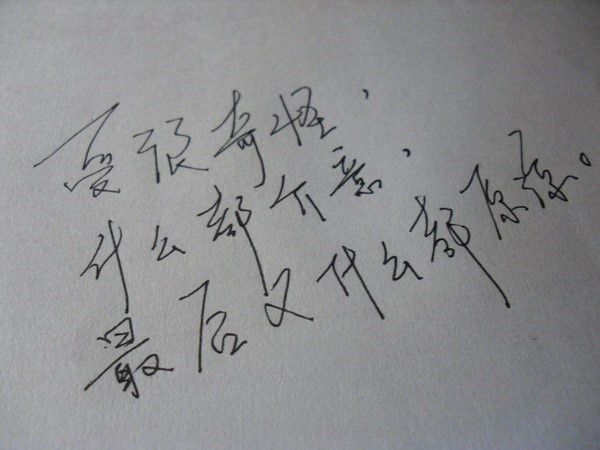 爱很奇怪，
什么都介意，
最后又什么都原谅。